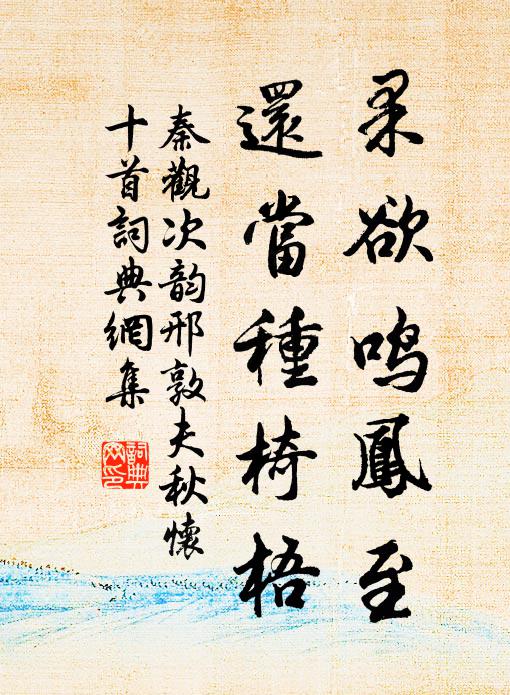 果欲鸣鳳至
還當種椅梧
秦觀次韵邢敦夫秋懷
十首詞典網集
詞典網印